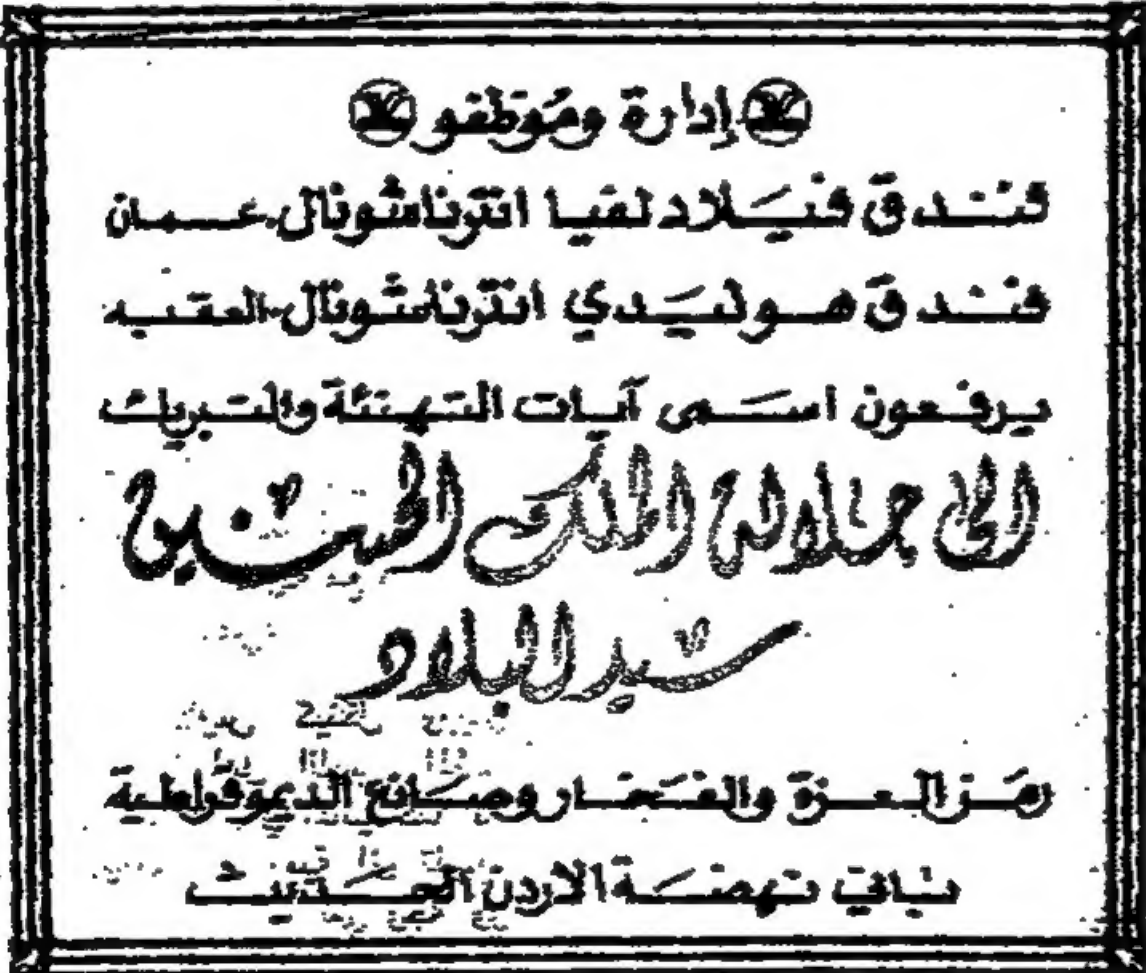 إدارة وموظفو
فندق فيلادلفيا انترناشونال - عمان
فندق هوليدي انترناشونال - العقبه
يرفعون اسمى آيات التهنئة والتبريك
الى جلالة الملك الحسين
سيد البلاد
رمز العزة والفخار وصانع الديموقراطية
باني نهضة الاردن الحديث